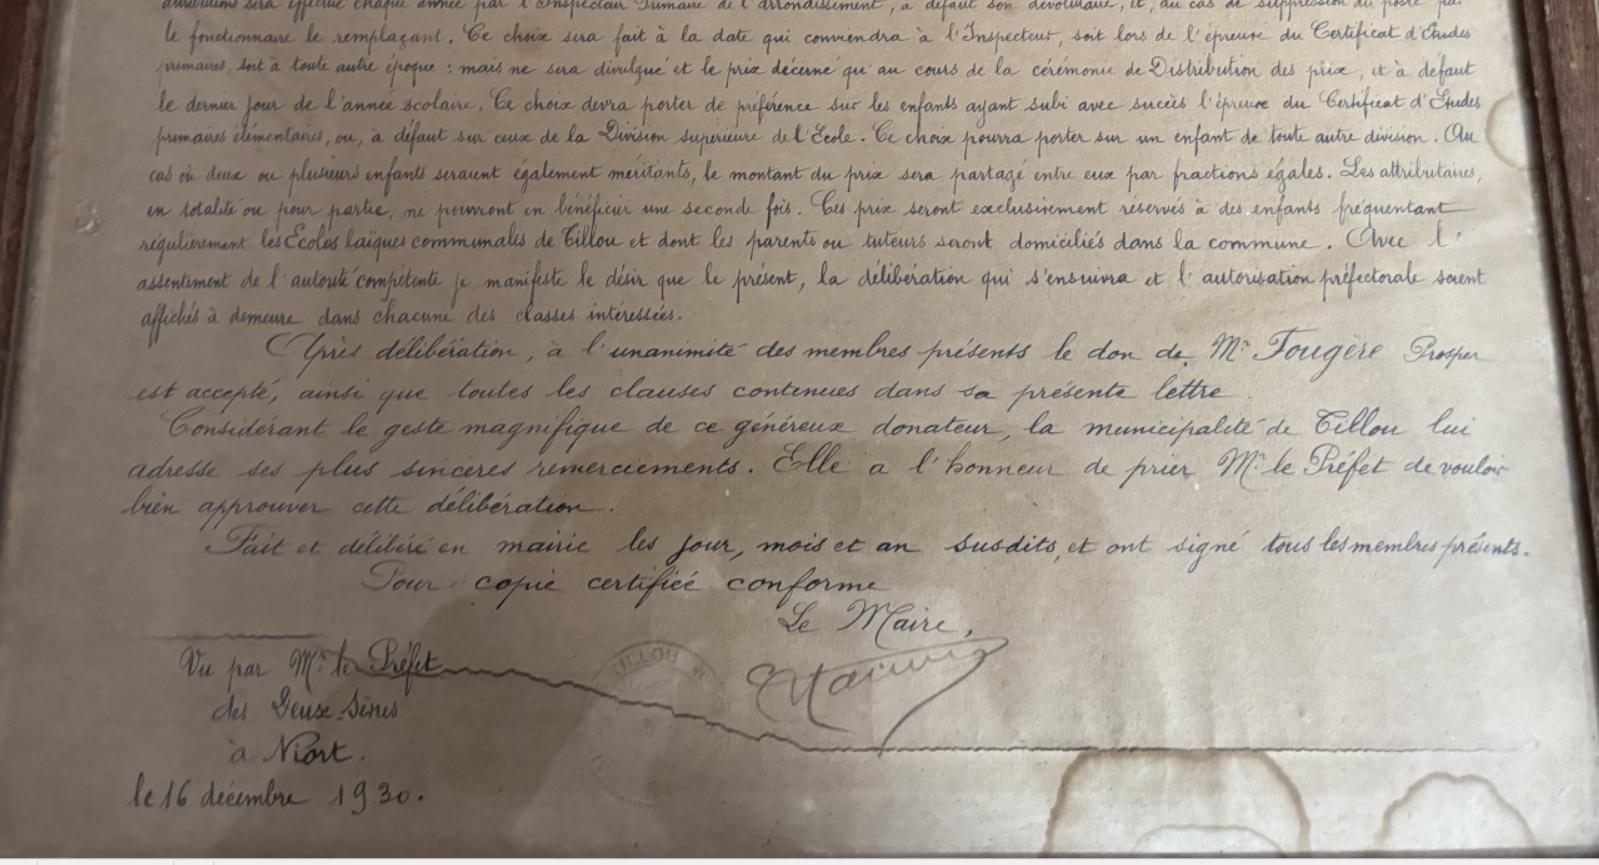 attributions sera effectué chaque année par l'Inspecteur Primaire de l'arrondissement, à défaut son dévolutaire, et, au cas de suppression du poste par
le fonctionnaire le remplaçant. Ce choix sera fait à la date qui conviendra à l'Inspecteur, soit lors de l'épreuve du Certificat d'Études
primaires, soit à toute autre époque : mais ne sera divulgué et le prix décerné qu'au cours de la cérémonie de Distribution des prix, et à défaut
le dernier jour de l'année scolaire. Ce choix devra porter de préférence sur les enfants ayant subi avec succès l'épreuve du Certificat d'Études
primaires élémentaires, ou, à défaut sur ceux de la Division supérieure de l'École. Ce choix pourra porter sur un enfant de toute autre division. Au
cas où deux ou plusieurs enfants seraient également méritants, le montant du prix sera partagé entre eux par fractions égales. Les attributaires,
en totalité ou pour partie, ne pourront en bénéficier une seconde fois. Ces prix seront exclusivement réservés à des enfants fréquentant
régulièrement les Écoles laïques communales de Tillou et dont les parents ou tuteurs seront domiciliés dans la commune. Avec l'
assentiment de l'autorité compétente je manifeste le désir que le présent, la délibération qui s'ensuivra et l'autorisation préfectorale soient
affichés à demeure dans chacune des classes intéressées.
Après délibération, à l'unanimité des membres présents le don de Mr Fougère Prosper
est accepté, ainsi que toutes les clauses contenues dans sa présente lettre.
Considérant le geste magnifique de ce généreux donateur, la municipalité de Tillou lui
adresse ses plus sincères remerciements. Elle a l'honneur de prier Mr le Préfet de vouloir
bien approuver cette délibération.
Fait et délibéré en mairie les jour, mois et an susdits, et ont signé tous les membres présents.
Pour copie certifiée conforme
Le Maire,
Vu par Mr le Préfet
des Deux-Sèvres
à Niort.
le 16 décembre 1930.
TILLOU